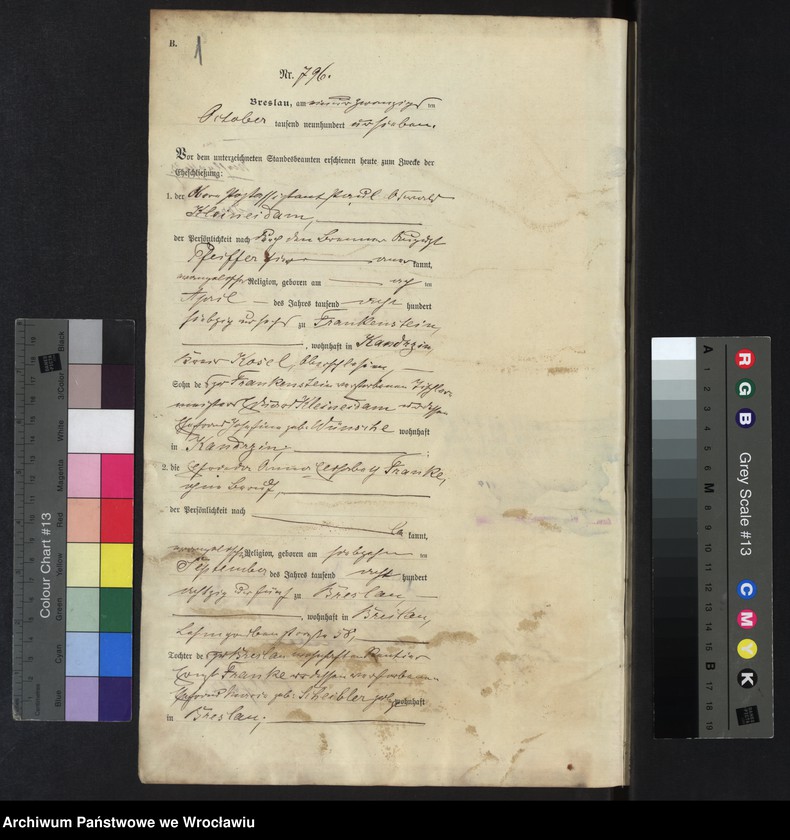 B. 1
Nr. 796.
Breslau, am einundzwanzigsten
October tausend neunhundert und sieben.
Vor dem unterzeichneten Standesbeamten erschienen heute zum Zwecke der
Eheschließung:
1. der Ober-Postassistent Paul Oswald
Kleineidam,
der Persönlichkeit nach durch den August
Pfeiffer kannt,
evangelischer Religion, geboren am
April des Jahres tausend acht hundert
siebzig und sechs zu Frankenstein,
, wohnhaft in Kandrzin,
Kreis Kosel, Oberschlesien,
Sohn des zu Frankenstein verstorbenen Tischler-
meisters Eduard Kleineidam und dessen
Ehefrau Josefine geb. Wünsche wohnhaft
in Kandrzin;
2. die Anna Franke,
ohne Beruf,
der Persönlichkeit nach
be kannt,
evangelischer Religion, geboren am siebzehnten
September des Jahres tausend acht hundert
achtzig und fünf zu Breslau
, wohnhaft in Breslau,
Lehmgrubenstraße 58,
Tochter des zu Breslau wohnhaften Rentier
Franke und dessen verstorbenen
Ehefrau geb. Scheibler wohnhaft
in Breslau;
Colour Chart #13
Black
3/Color
White
Magenta
Red
Yellow
Green
Cyan
Blue
Grey Scale #13
R
G
B
C
M
Y
K
A 1 2 3 4 5 6 M 8 9 10 11 12 13 14 15 B 17 18 19
Archiwum Państwowe we Wrocławiu